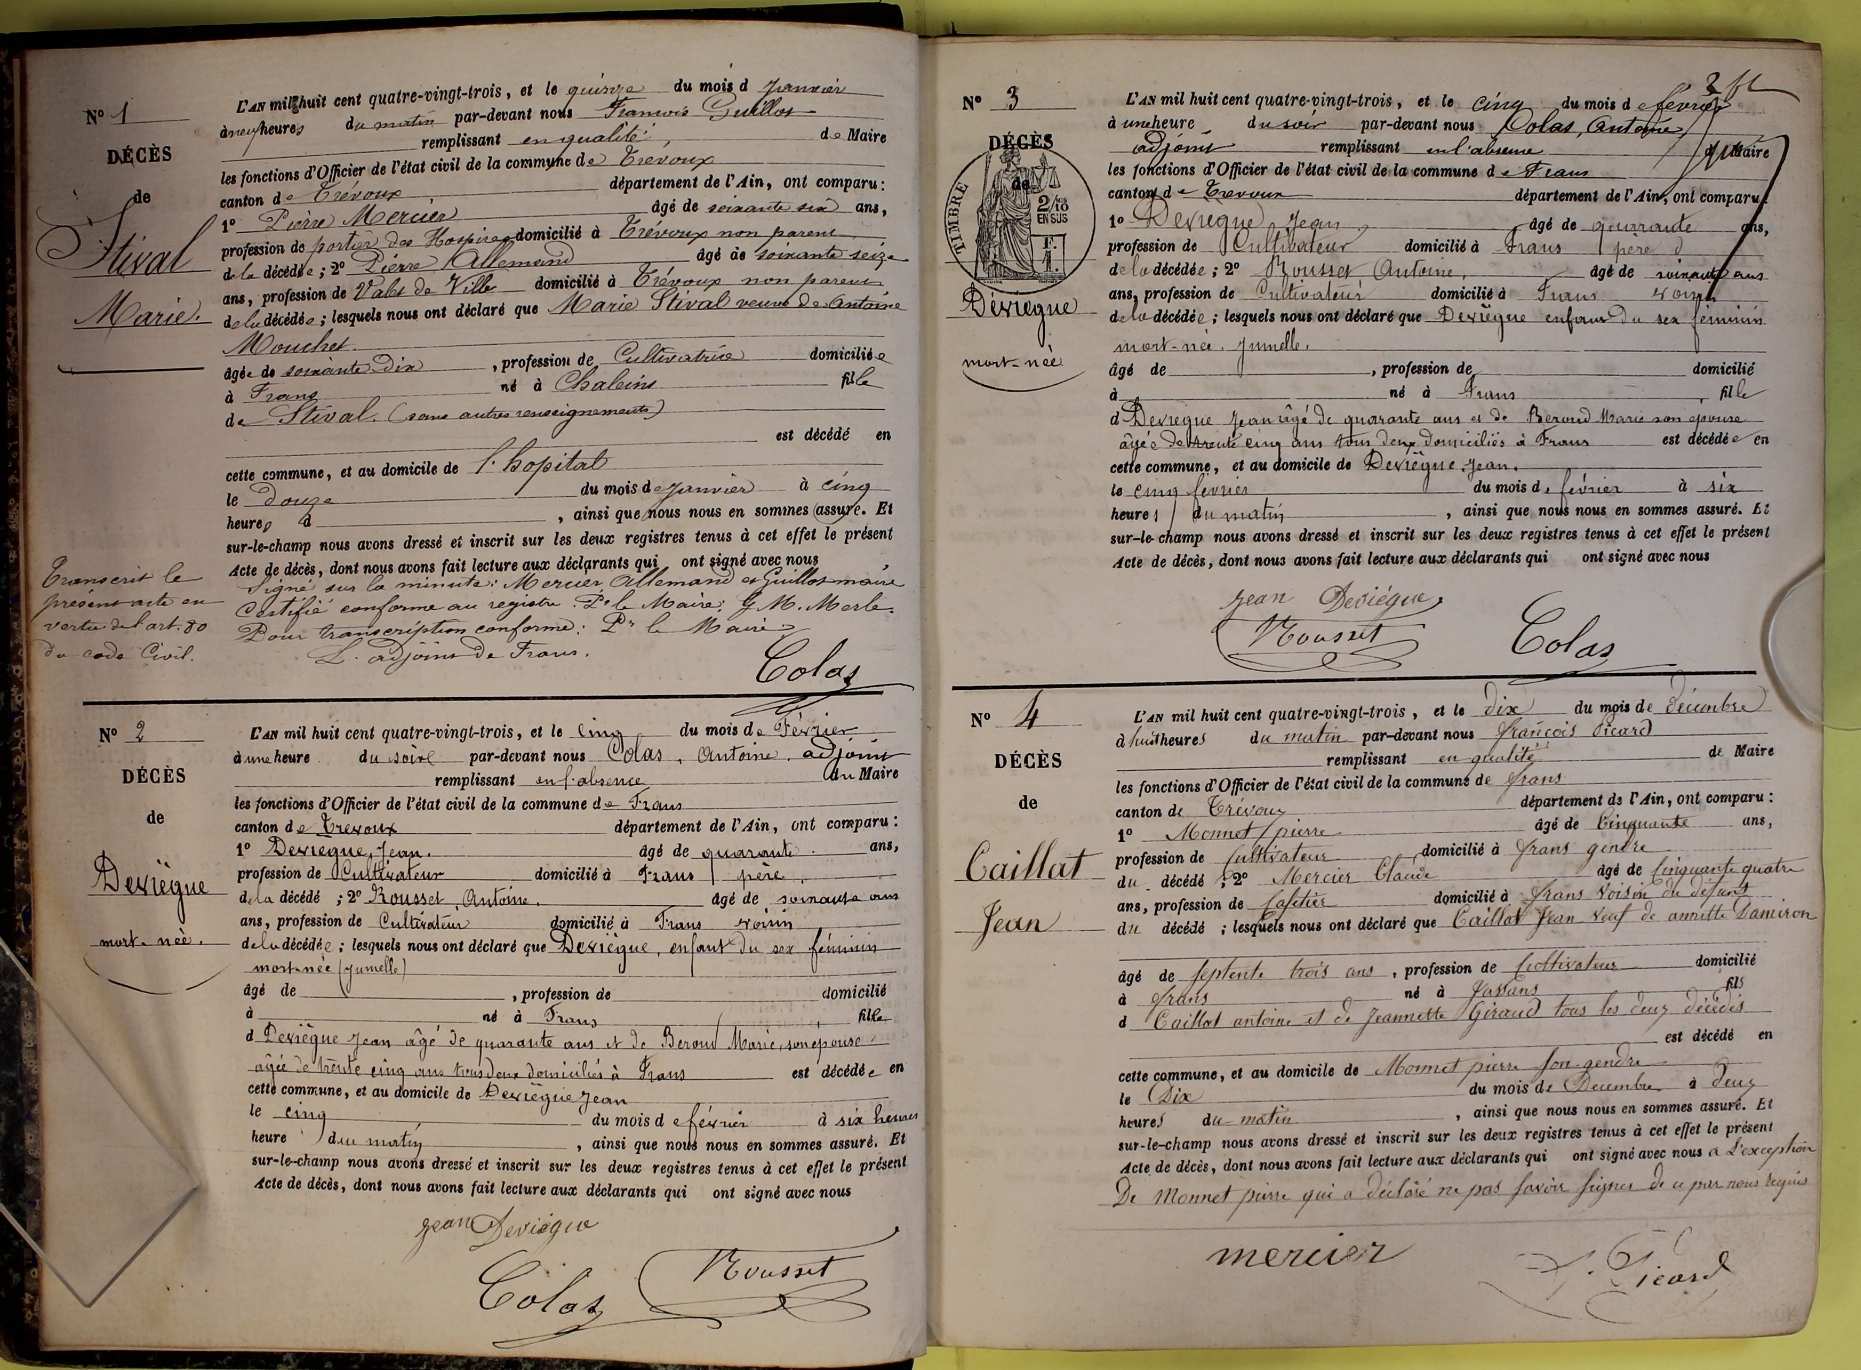 N° 1
DÉCÈS
de
Stival
Marie.
Transcrit le
présent acte en
vertu de l'art. 80
du code Civil.
L'AN mil huit cent quatre-vingt-trois, et le quinze du mois d Janvier
à neuf heures du matin par-devant nous François Guillot
remplissant en qualité de Maire
les fonctions d'Officier de l'état civil de la commune de Trévoux
canton de Trévoux département de l'Ain, ont comparu :
1° Pierre Mercier âgé de soixante six ans,
profession de portier des Hospices domicilié à Trévoux non parent
de la décédée ; 2° Pierre Allemand âgé de soixante seize
ans, profession de Valet de Ville domicilié à Trévoux non parent
de la décédée ; lesquels nous ont déclaré que Marie Stival veuve de Antoine
Mouchet
âgée de soixante dix , profession de Cultivatrice domiciliée
à Frans né à Chaleins fille
de Stival. (sans autres renseignements)
est décédé en
cette commune, et au domicile de l'hopital
le douze du mois de Janvier à cinq
heures d , ainsi que nous nous en sommes assuré. Et
sur-le-champ nous avons dressé et inscrit sur les deux registres tenus à cet effet le présent
Acte de décès, dont nous avons fait lecture aux déclarants qui ont signé avec nous
Signé sur la minute : Mercier Allemand et Guillot maire
Certifié conforme au registre. Pr le Maire : G. M. Merle.
Pour transcription conforme : Pr le Maire
L. adjoint de Frans.
Colas
N° 2
DÉCÈS
de
Deviègue
mort-née.
L'AN mil huit cent quatre-vingt-trois, et le cinq du mois de Février
à une heure du soire par-devant nous Colas, Antoine, adjoint
remplissant en l'absence du Maire
les fonctions d'Officier de l'état civil de la commune de Frans
canton de Trevoux département de l'Ain, ont comparu :
1° Deviegue, Jean. âgé de quarante ans,
profession de Cultivateur domicilié à Frans père
de la décédé ; 2° Rousset, Antoine. âgé de soixante ans
ans, profession de Cultivateur domicilié à Frans voisin
de la décédée ; lesquels nous ont déclaré que Deviègue, enfant du sex féminin
mort-née (jumelle)
âgé de , profession de domicilié
à né à Frans fille
d Deviègue Jean âgé de quarante ans et de Beroud Marie, son epouse
âgée de trente cinq ans tous deux domiciliés à Frans est décédée en
cette commune, et au domicile de Deviègue Jean
le cinq du mois de février à six heures
heure du matin , ainsi que nous nous en sommes assuré. Et
sur-le-champ nous avons dressé et inscrit sur les deux registres tenus à cet effet le présent
Acte de décès, dont nous avons fait lecture aux déclarants qui ont signé avec nous
Jean Deviègue
Colas Rousset
2
N° 3
DÉCÈS
de
TIMBRE
2/10
EN SUS
Déviegue
mort-née
L'AN mil huit cent quatre-vingt-trois, et le cinq du mois de février
à une heure du soir par-devant nous Colas, Antoine
adjoint remplissant en l'absence du Maire
les fonctions d'Officier de l'état civil de la commune de Frans
canton de Trevoux département de l'Ain, ont comparu :
1° Deviegue Jean, âgé de quarante ans,
profession de Cultivateur domicilié à Frans père d
de la décédée ; 2° Rousset Antoine, âgé de soixante ans
ans, profession de Cultivateur domicilié à Frans voisin
de la décédée ; lesquels nous ont déclaré que Deviègue enfant du sex féminin
mort-née. Jumelle.
âgé de , profession de domicilié
à né à Frans , fille
d Deviègue Jean âgé de quarante ans et de Beroud Marie son epouse
âgée de trente cinq ans tous deux domiciliés à Frans est décédée en
cette commune, et au domicile de Deviègue, Jean.
le cinq février du mois de février à six
heures du matin , ainsi que nous nous en sommes assuré. Et
sur-le-champ nous avons dressé et inscrit sur les deux registres tenus à cet effet le présent
Acte de décès, dont nous avons fait lecture aux déclarants qui ont signé avec nous
Jean Deviégue
Rousset Colas
N° 4
DÉCÈS
de
Caillat
Jean
L'AN mil huit cent quatre-vingt-trois, et le dix du mois de décembre
à huit heures du matin par-devant nous françois Picard
remplissant en qualité de Maire
les fonctions d'Officier de l'état civil de la commune de frans
canton de Trévoux département de l'Ain, ont comparu :
1° Monnet pierre âgé de Cinquante ans,
profession de Cultivateur domicilié à frans gendre
du décédé ; 2° Mercier Claude âgé de Cinquante quatre
ans, profession de Cafetier domicilié à frans voisin du défunt
du décédé ; lesquels nous ont déclaré que Caillat Jean veuf de annette Damiron
âgé de septente trois ans , profession de Cultivateur domicilié
à frans né à Jassans fils
d Caillat antoine et de Jeannette Giraud tous les deux décédés
est décédé en
cette commune, et au domicile de Monnet pierre son gendre
le Dix du mois de Decembre à deux
heures du matin , ainsi que nous nous en sommes assuré. Et
sur-le-champ nous avons dressé et inscrit sur les deux registres tenus à cet effet le présent
Acte de décès, dont nous avons fait lecture aux déclarants qui ont signé avec nous a L'exception
De Monnet pierre qui a déclaré ne pas savoir signer de ce par nous requis
mercier Picard